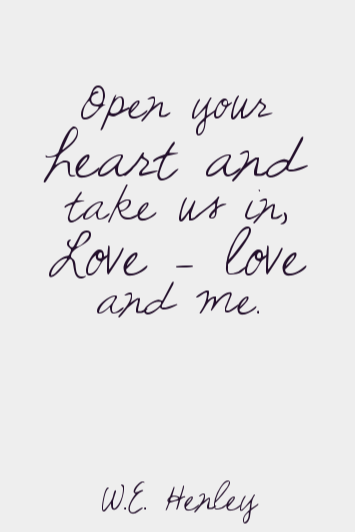 Open your
heart and
take us in,
Love – love
and me.
W.E. Henley